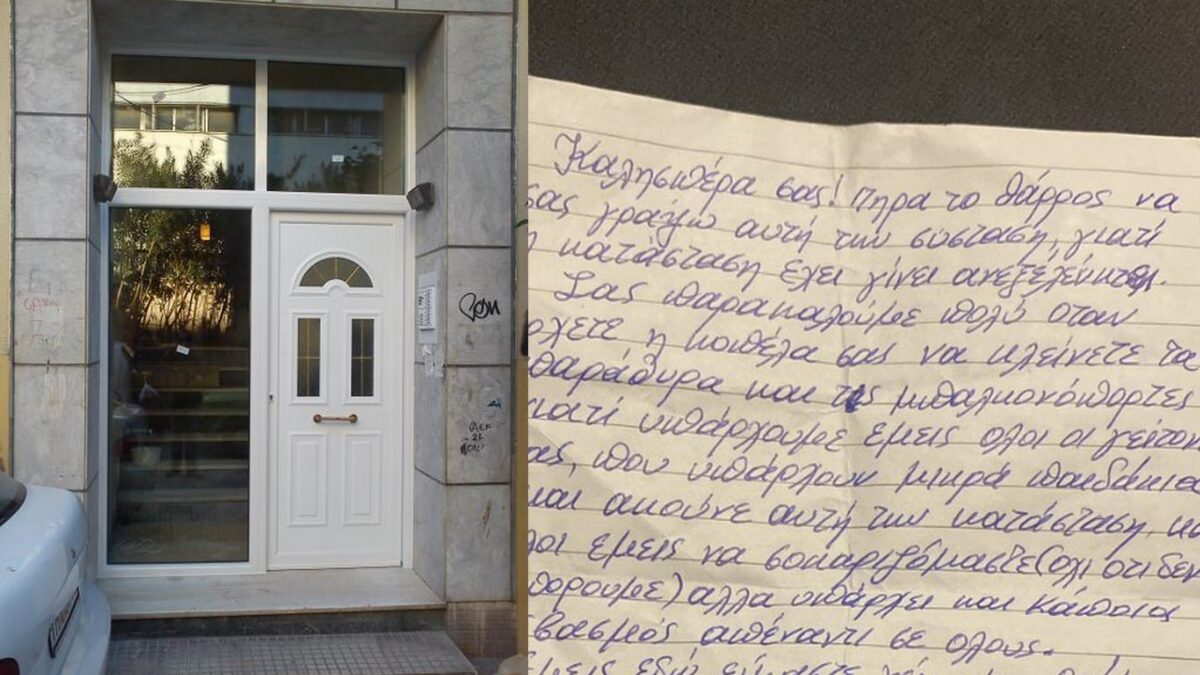 Καλησπέρα σας! Πήρα το θάρρος να
σας γράψω αυτή την σύσταση, γιατί
η κατάσταση έχει γίνει ανεξέλεγκτη.
Σας παρακαλούμε πολύ όταν
ρχετε η κοπέλα σας να κλείνετε τα
παράθυρα και τις μπαλκονόπορτες
γιατί υπάρχουμε εμεις ολοι οι γείτον
ας, που υπάρχουν μικρά παιδάκια
και ακούνε αυτή την κατάσταση, κα
λοι εμεις να σοκαριζόμαστε(οχι οτι δεν
πορουμε) αλλα υπάρχει και κάποιοι
βασμός απέναντι σε ολους.
εμεις εδώ είμαστε